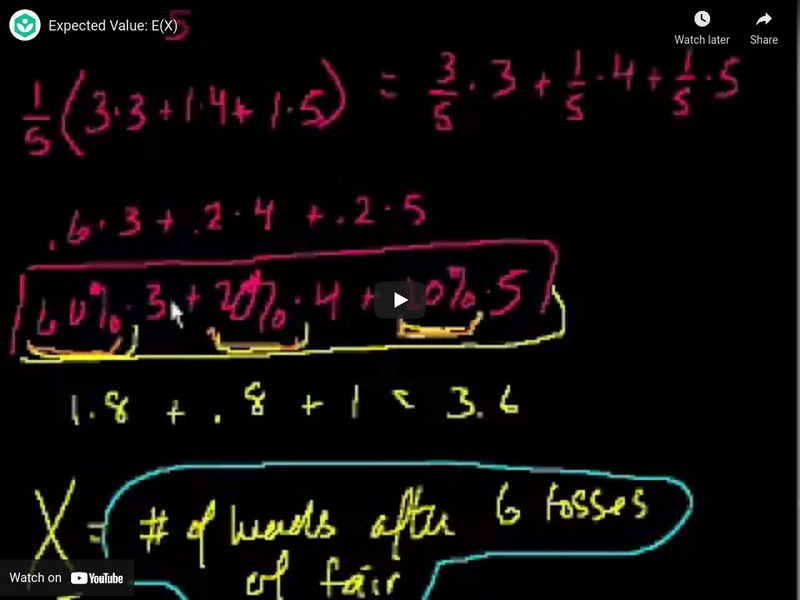 Expected Value: E(X)
5
Watch later
Share
1/5 (3·3+1·4+1·5) = 3/5 · 3 + 1/5 · 4 + 1/5 · 5
.6·3 + .2·4 + .2·5
60%·3 + 20%·4 + 20%·5
1.8 + .8 + 1 = 3.6
X = # of heads after 6 tosses
of fair
Watch on YouTube